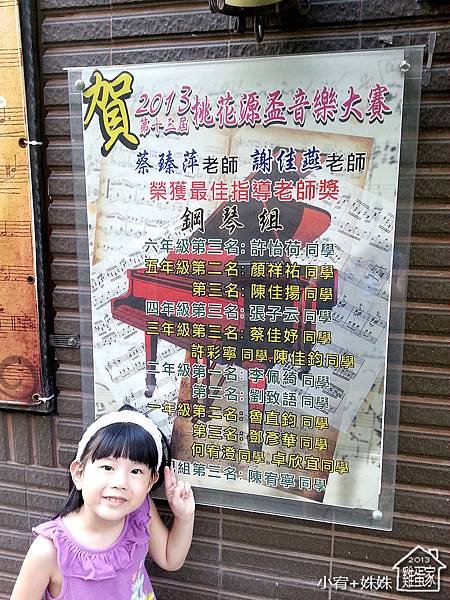 賀
2013
第十三屆 桃花源盃音樂大賽
蔡臻萍老師 謝佳燕老師
榮獲最佳指導老師獎
鋼琴組
六年級第三名:許怡荷同學
五年級第二名:顏祥祐同學
第三名:陳佳揚同學
四年級第三名:張子云同學
三年級第三名:蔡佳妤同學
許彩寧同學.陳佳鈞同學
二年級第一名:李佩綺同學
第二名:劉致語同學
一年級第二名:魯直鈞同學
第三名:鄧彥華同學
何宥澄同學.卓欣宜同學
組第三名:陳宥寧同學
小宥+姝姝
2013
雞蛋家